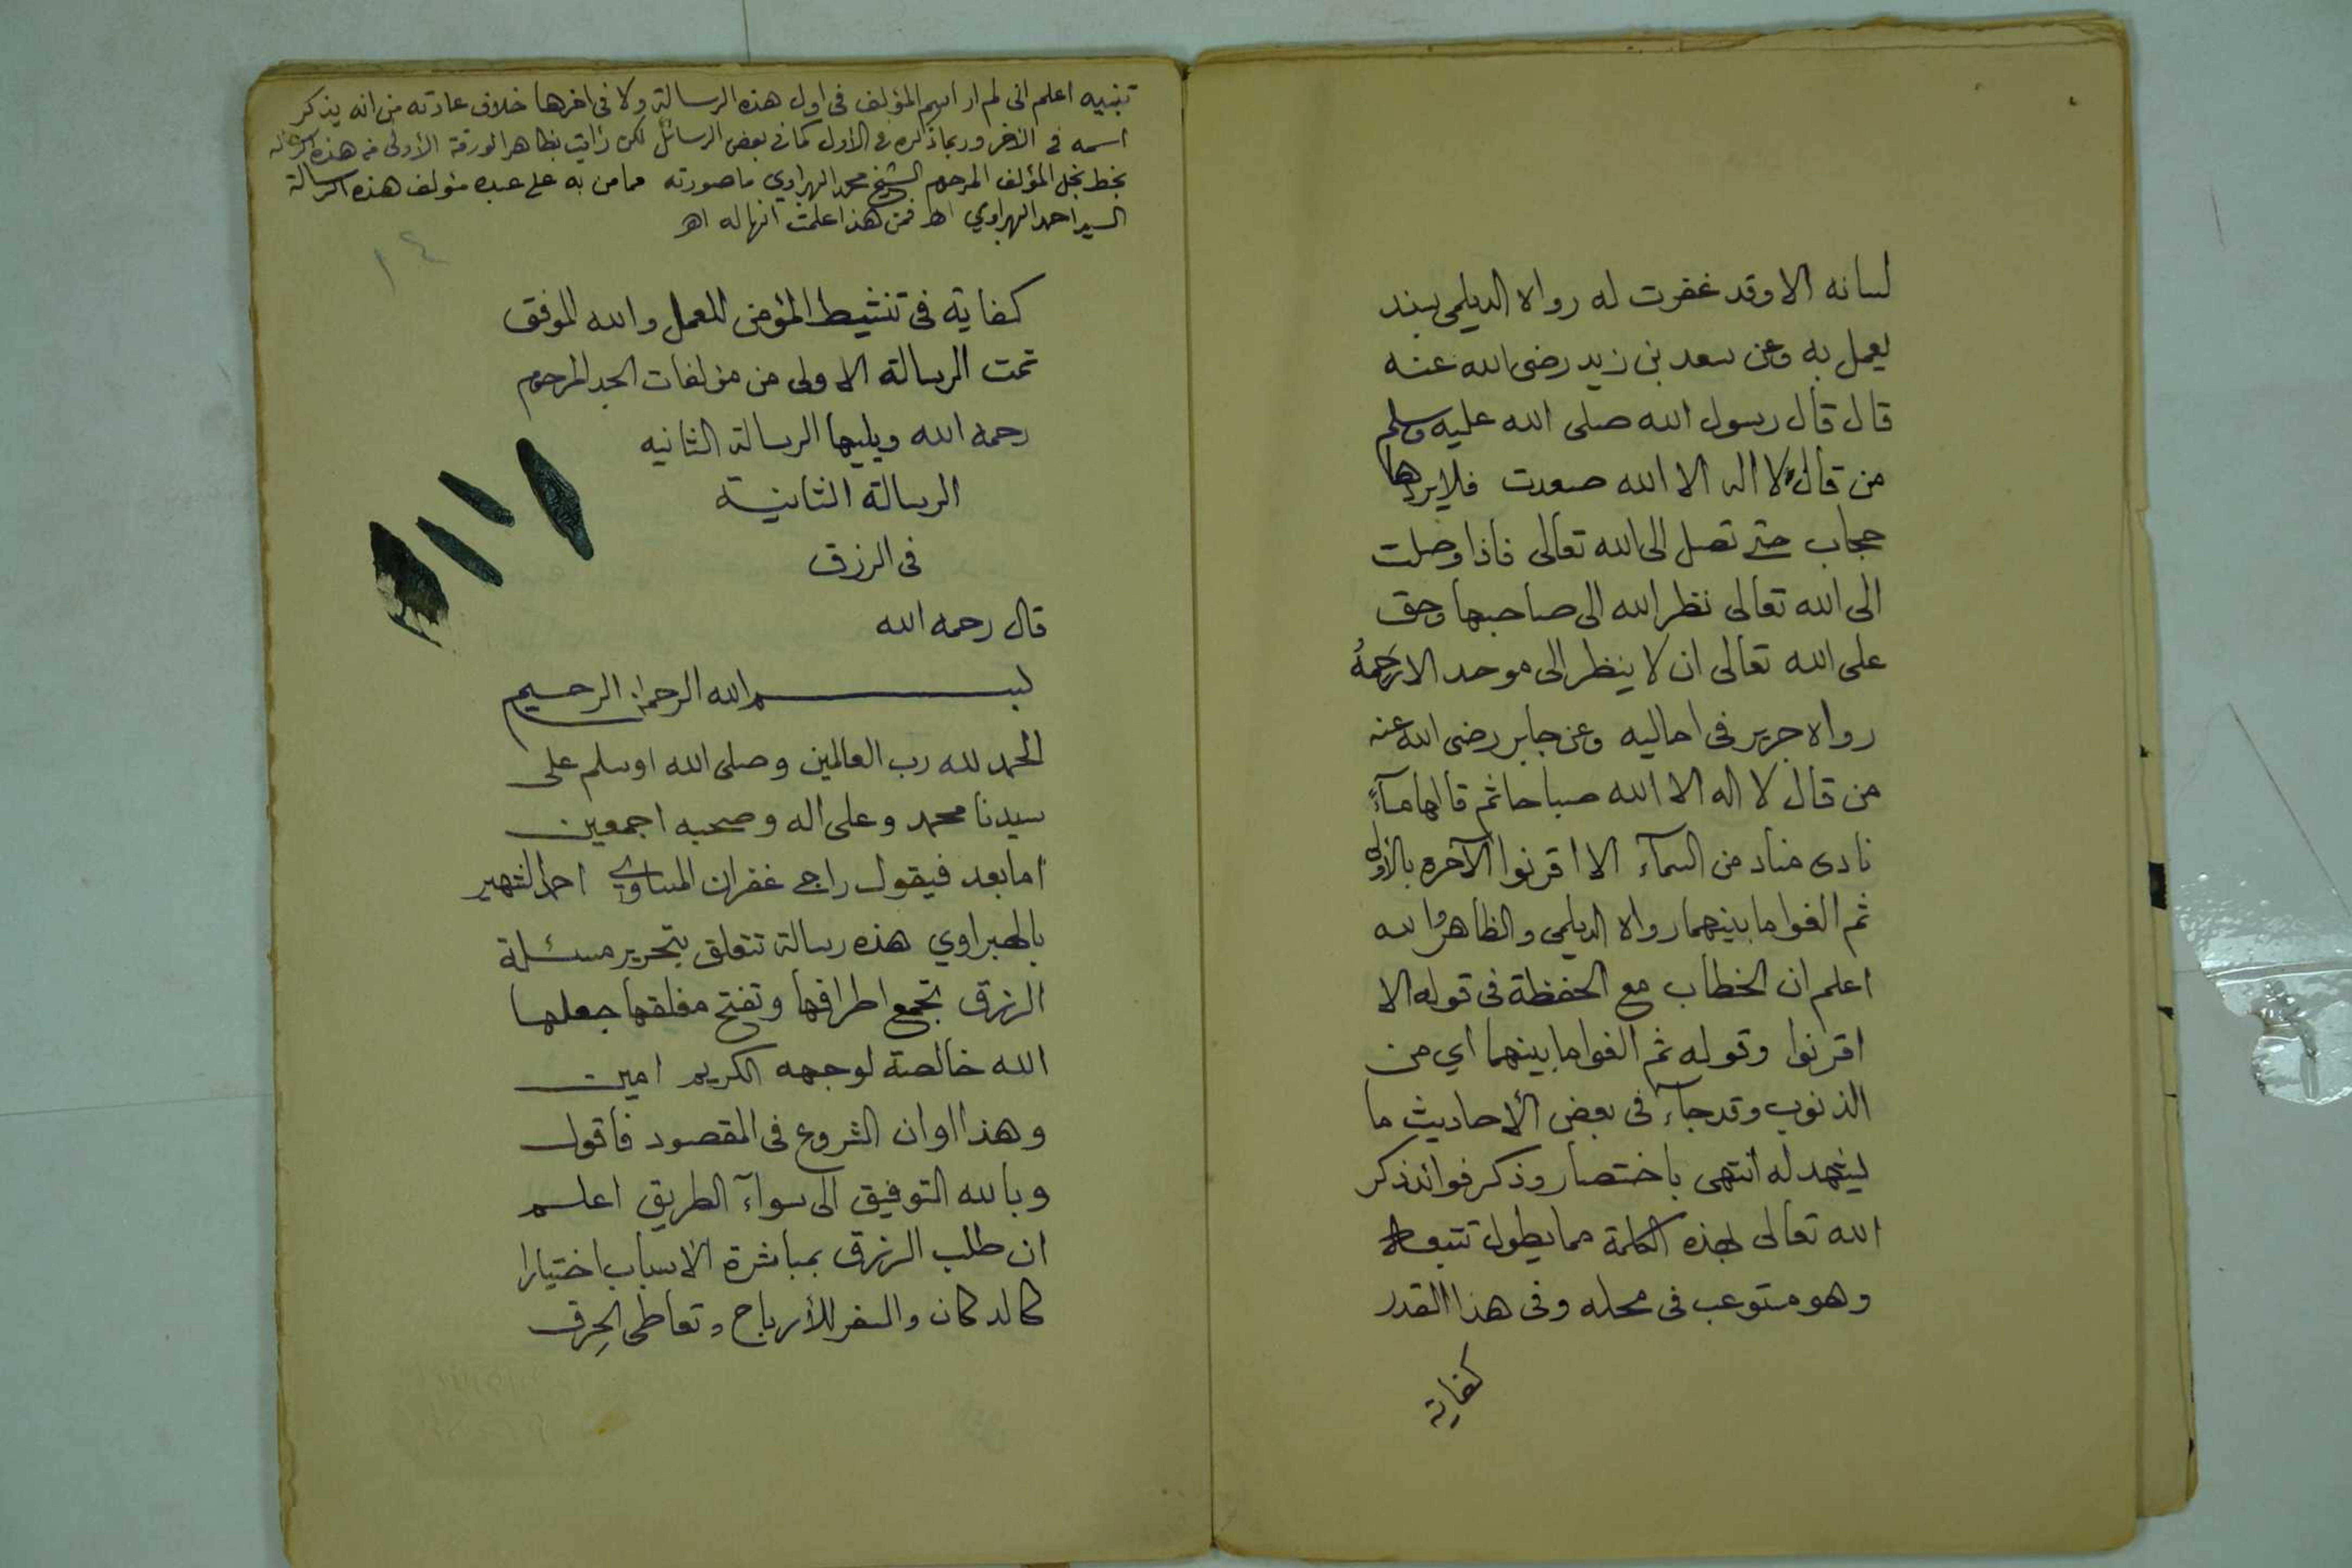 لسانه الا وقد غفرت له رواه الديلمي بسند
يعمل به وعن سعد بن زيد رضى الله عنه
قال قال رسول الله صلى الله عليه وسلم
من قال لا اله الا الله صعدت فلا يردها
حجاب حتى تصل الى الله تعالى فاذا وصلت
الى الله تعالى نظر الله الى صاحبها وحق
على الله تعالى ان لا ينظر الى موحد الا رَحِمَهُ
رواه جرير فى اماليه وعن جابر رضى الله عنه
من قال لا اله الا الله صباحا ثم قالها مسآءً
نادى مناد من السمآء الا اقرنوا الآخره بالأولى
ثم الغوا ما بينهما رواه الديلمى والظاهر والله
اعلم ان الخطاب مع الحفظة فى قوله الا
اقرنوا وقوله ثم الغوا ما بينهما اي من
الذنوب وقد جآء فى بعض الأحاديث ما
يشهد له انتهى باختصار وذكر فوائد ذكر
الله تعالى بهذه الكلمة مما يطول تتبعه
وهو مستوعب فى محله وفى هذا القدر
كفاية
تنبيه اعلم انى لم ار اسم المؤلف فى اول هذه الرسالة ولا فى اخرها خلاف عادته من انه يذكر
اسمه فى الآخر وربما ذكره فى الأول كما فى بعض الرسائل لكن رأيت بظاهر الورقة الأولى من هذه الرسالة
بخط نجل المؤلف المرحوم الشيخ محمد الهبراوي ما صورته مما من به على عبده مؤلف هذه الرسالة
السيد احمد الهبراوي اهـ فمن هذا علمت انها له اهـ
١٤
كفاية فى تنشيط المؤمن للعمل والله الموفق
تمت الرسالة الاولى من مؤلفات الجد المرحوم
رحمه الله ويليها الرسالة الثانيه
الرسالة الثانية
فى الرزق
قال رحمه الله
بسم الله الرحمن الرحيم
الحمد لله رب العالمين وصلى الله اوسلم على
سيدنا محمد وعلى اله وصحبه اجمعين
اما بعد فيقول راجي غفران المساوي احمد الشهير
بالهبراوي هذه رسالة تتعلق بتحرير مسئلة
الرزق تجمع اطرافها وتفتح مغلقها جعلها
الله خالصة لوجهه الكريم امين
وهذا اوان الشروع فى المقصود فاقول
وبالله التوفيق الى سوآء الطريق اعلم
ان طلب الرزق بمباشرة الاسباب اختيارا
كالدكان والسفر للأرباح وتعاطى الحِرف